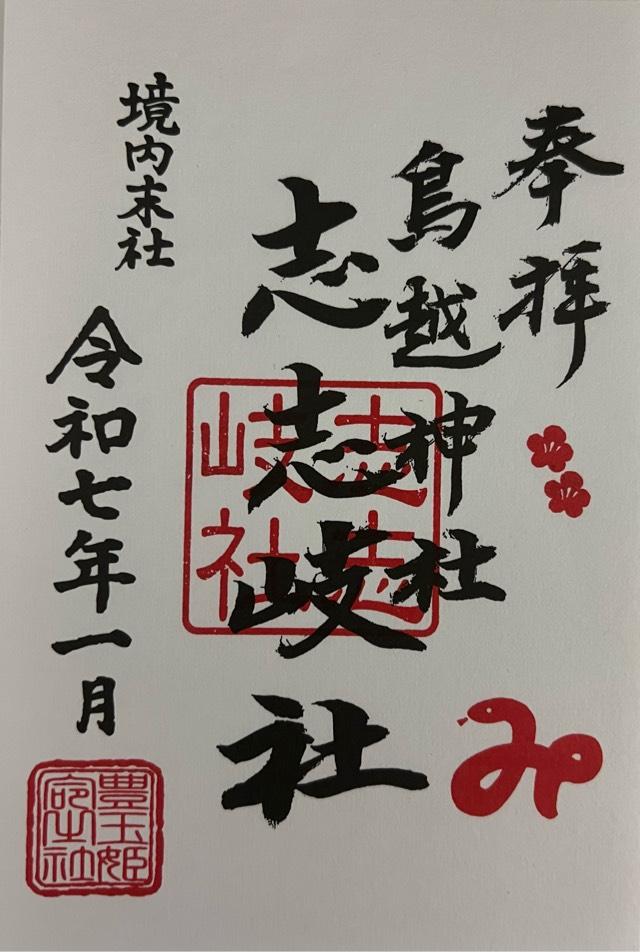 奉拝
鳥越神社
志志岐社
志志岐社
み
境内末社
令和七年一月
豊玉姫
社